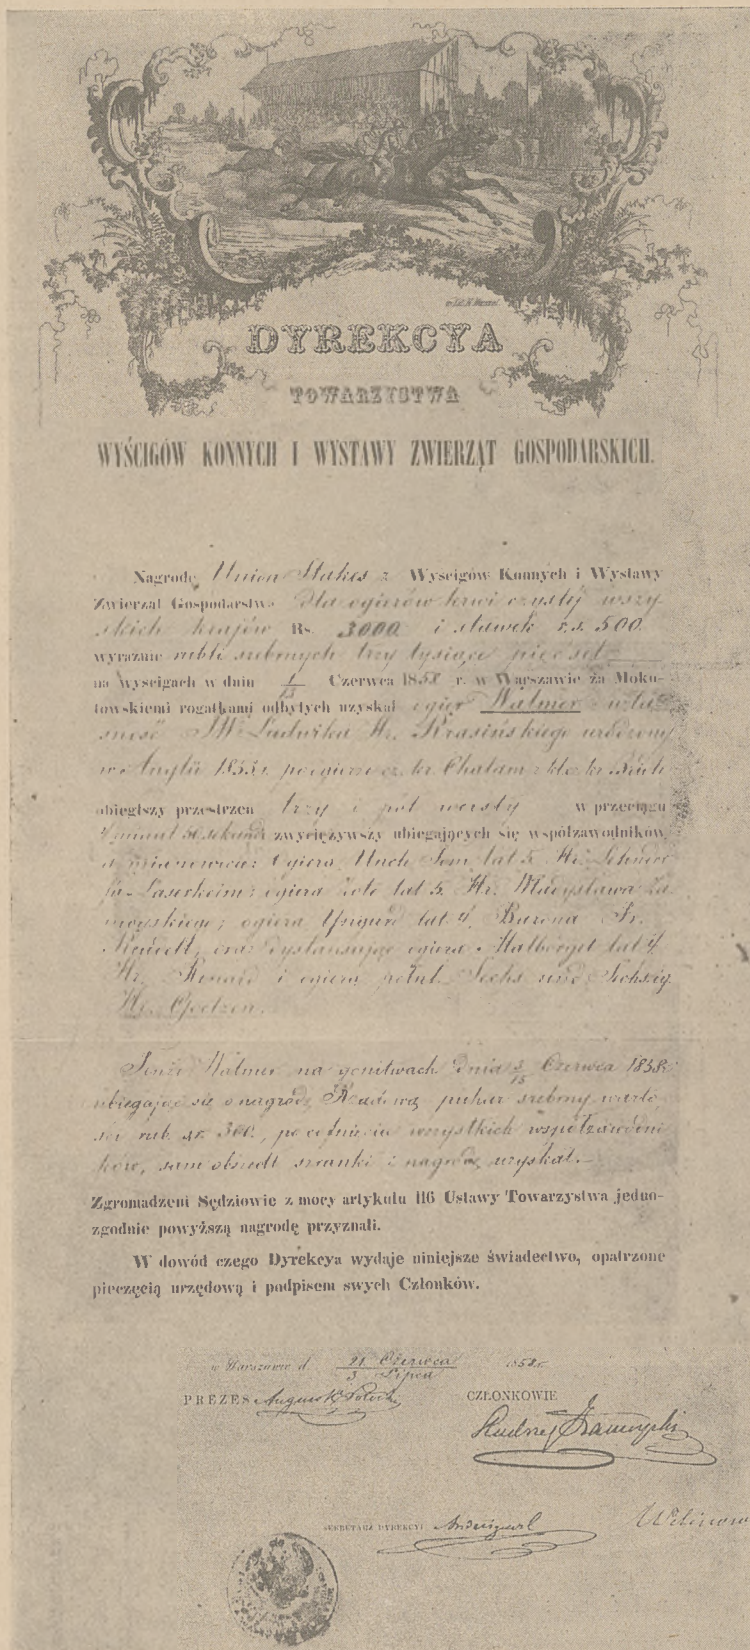 DYREKCYA
TOWARZYSTWA
WYŚCIGÓW KONNYCH I WYSTAWY ZWIERZĄT GOSPODARSKICH.
Nagrodę Union Stakes z Wyscigów Konnych i Wystawy
Zwierząt Gospodarstwa dla ogierów krwi czystéj wszy-
skich krajów Rs. 3000 i stawek r.s. 500
wyraznie rubli srebrnych trzy tysiące pięćset
na wyscigach w dniu 1/13 Czerwca 1858 r. w Warszawie za Moko-
towskiemi rogatkami odbytych uzyskał ogier Walmer wła-
sność JW Ludwika Hr. Krasińskiego urodzony
w Anglii 1853 r. po ogierze cz. kr. Chatam z klе. kr.
obiegłszy przestrzen trzy i pół wersty w przeciągu
minut sekund zwyciężywszy ubiegających się współzawodników,
a mianowicie: Ogiera lat 5. Hr.
ogiera lat 5. Hr. Władysława Za-
moyskiego; ogiera lat 4, Barona Fr.
oraz dystansując ogiera lat 4
Hr. Renard i ogiera pełnl. Sechs und Sechsig
Hr.
Tenże Walmer na gonitwach dnia 3/15 Czerwca 1858 r.
ubiegając się o nagrodę Rządową puhar srebrny warto-
ści rub. sr. 300, po cofnięciu wszystkich współzawodni-
ków, sam obiegł szranki i nagrodę uzyskał.—
Zgromadzeni Sędziowie z mocy artykułu 116 Ustawy Towarzystwa jedno-
zgodnie powyższą nagrodę przyznali.
W dowód czego Dyrekcya wydaje niniejsze świadectwo, opatrzone
pieczęcią urzędową i podpisem swych Członków.
w Warszawie d. 21 Czerwca / 3 Lipca 1858 r.
PREZES August Potocki
CZŁONKOWIE
Andrzej Zamoyski
SEKRETARZ DYREKCYI